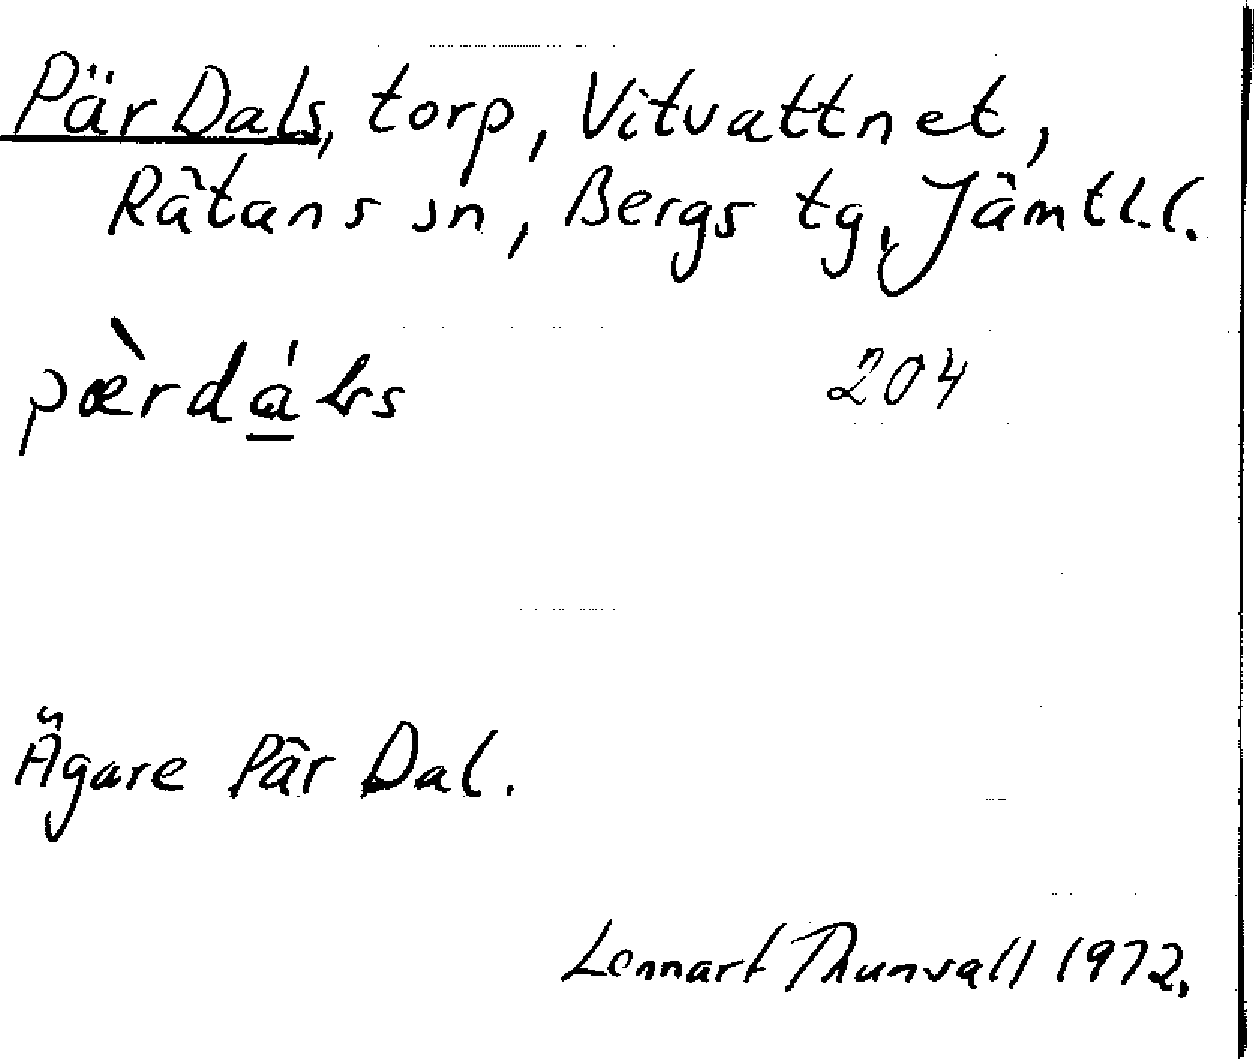 Pär Dals, torp, Vitvattnet,
Rätans sn, Bergs tg, Jämtl.l.
204
Ägare Pär Dal.
Lennart Thunvall 1972.